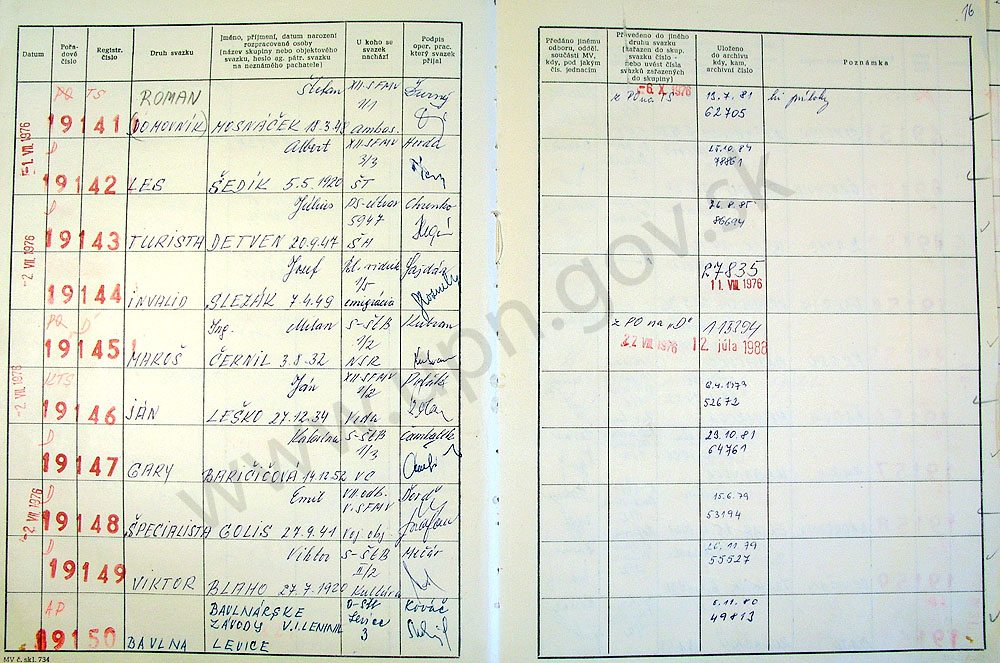 16
Datum
Pořadové číslo
Registr. číslo
Druh svazku
Jméno, příjmení, datum narození rozpracované osoby (název skupiny nebo objektového svazku, heslo ag. pátr. svazku na neznámého pachatele)
U koho se svazek nachází
Podpis oper. prac. který svazek přijal
Předáno jinému odboru, odděl. součásti MV, kdy, pod jakým čís. jednacím
Převedeno do jiného druhu svazku (zařazen do skup. svazku číslo - nebo uvést čísla svazků zařazených do skupiny)
Uloženo do archivu kdy, kam, archivní číslo
Poznámka
PO TS ROMAN Štefan XII-SFMV
1/1
19141 (DOMOVNÍK) MOSNÁČEK 18.3.48 ambas.
-6. X. 1976
z PO na TS 13.7.81
62705
-1. VII. 1976
D Albert XII-SFMV
3/3
19142 LES ŠEDÍK 5.5.1920 ŠT
78861
D Július
5947
19143 TURISTA DETVEN 20.9.47 ŠA
26.8.85
86694
-2. VII. 1976
Jozef
1/5
19144 INVALID SLEZÁK 7.4.49 emigrácia
27835
11. VIII. 1976
PO D Ing. Milan S-ŠtB Kubran
1/2
19145 MAROŠ ČERNIL 3.8.32 NSR
z PO na "D" 113294
22 VII 1976 12. júla 1988
-2. VII. 1976
KTS Ján XII-SFMV
1/2
19146 JÁN LEŠKO 27.12.34 Veda
52672
D Katarína S-ŠtB
1/3
19147 GARY BARIČIČOVÁ 14.12.52 VC
29.10.81
64761
-2. VII. 1976
D Emil VII.odb.
V.SFMV
19148 ŠPECIALISTA GOLIS 27.9.41 voj. obj.
15.6.79
53194
D Viktor S-ŠtB Mečár
II/2
19149 VIKTOR BLAHO 27.7.1920 Kultúra
26.11.79
55527
AP BAVLNÁRSKE Kováč
ZÁVODY V.I.LENINA Levice
3
19150 BAVLNA LEVICE
6.11.80
49813
MV č. skl. 734
www.upn.gov.sk